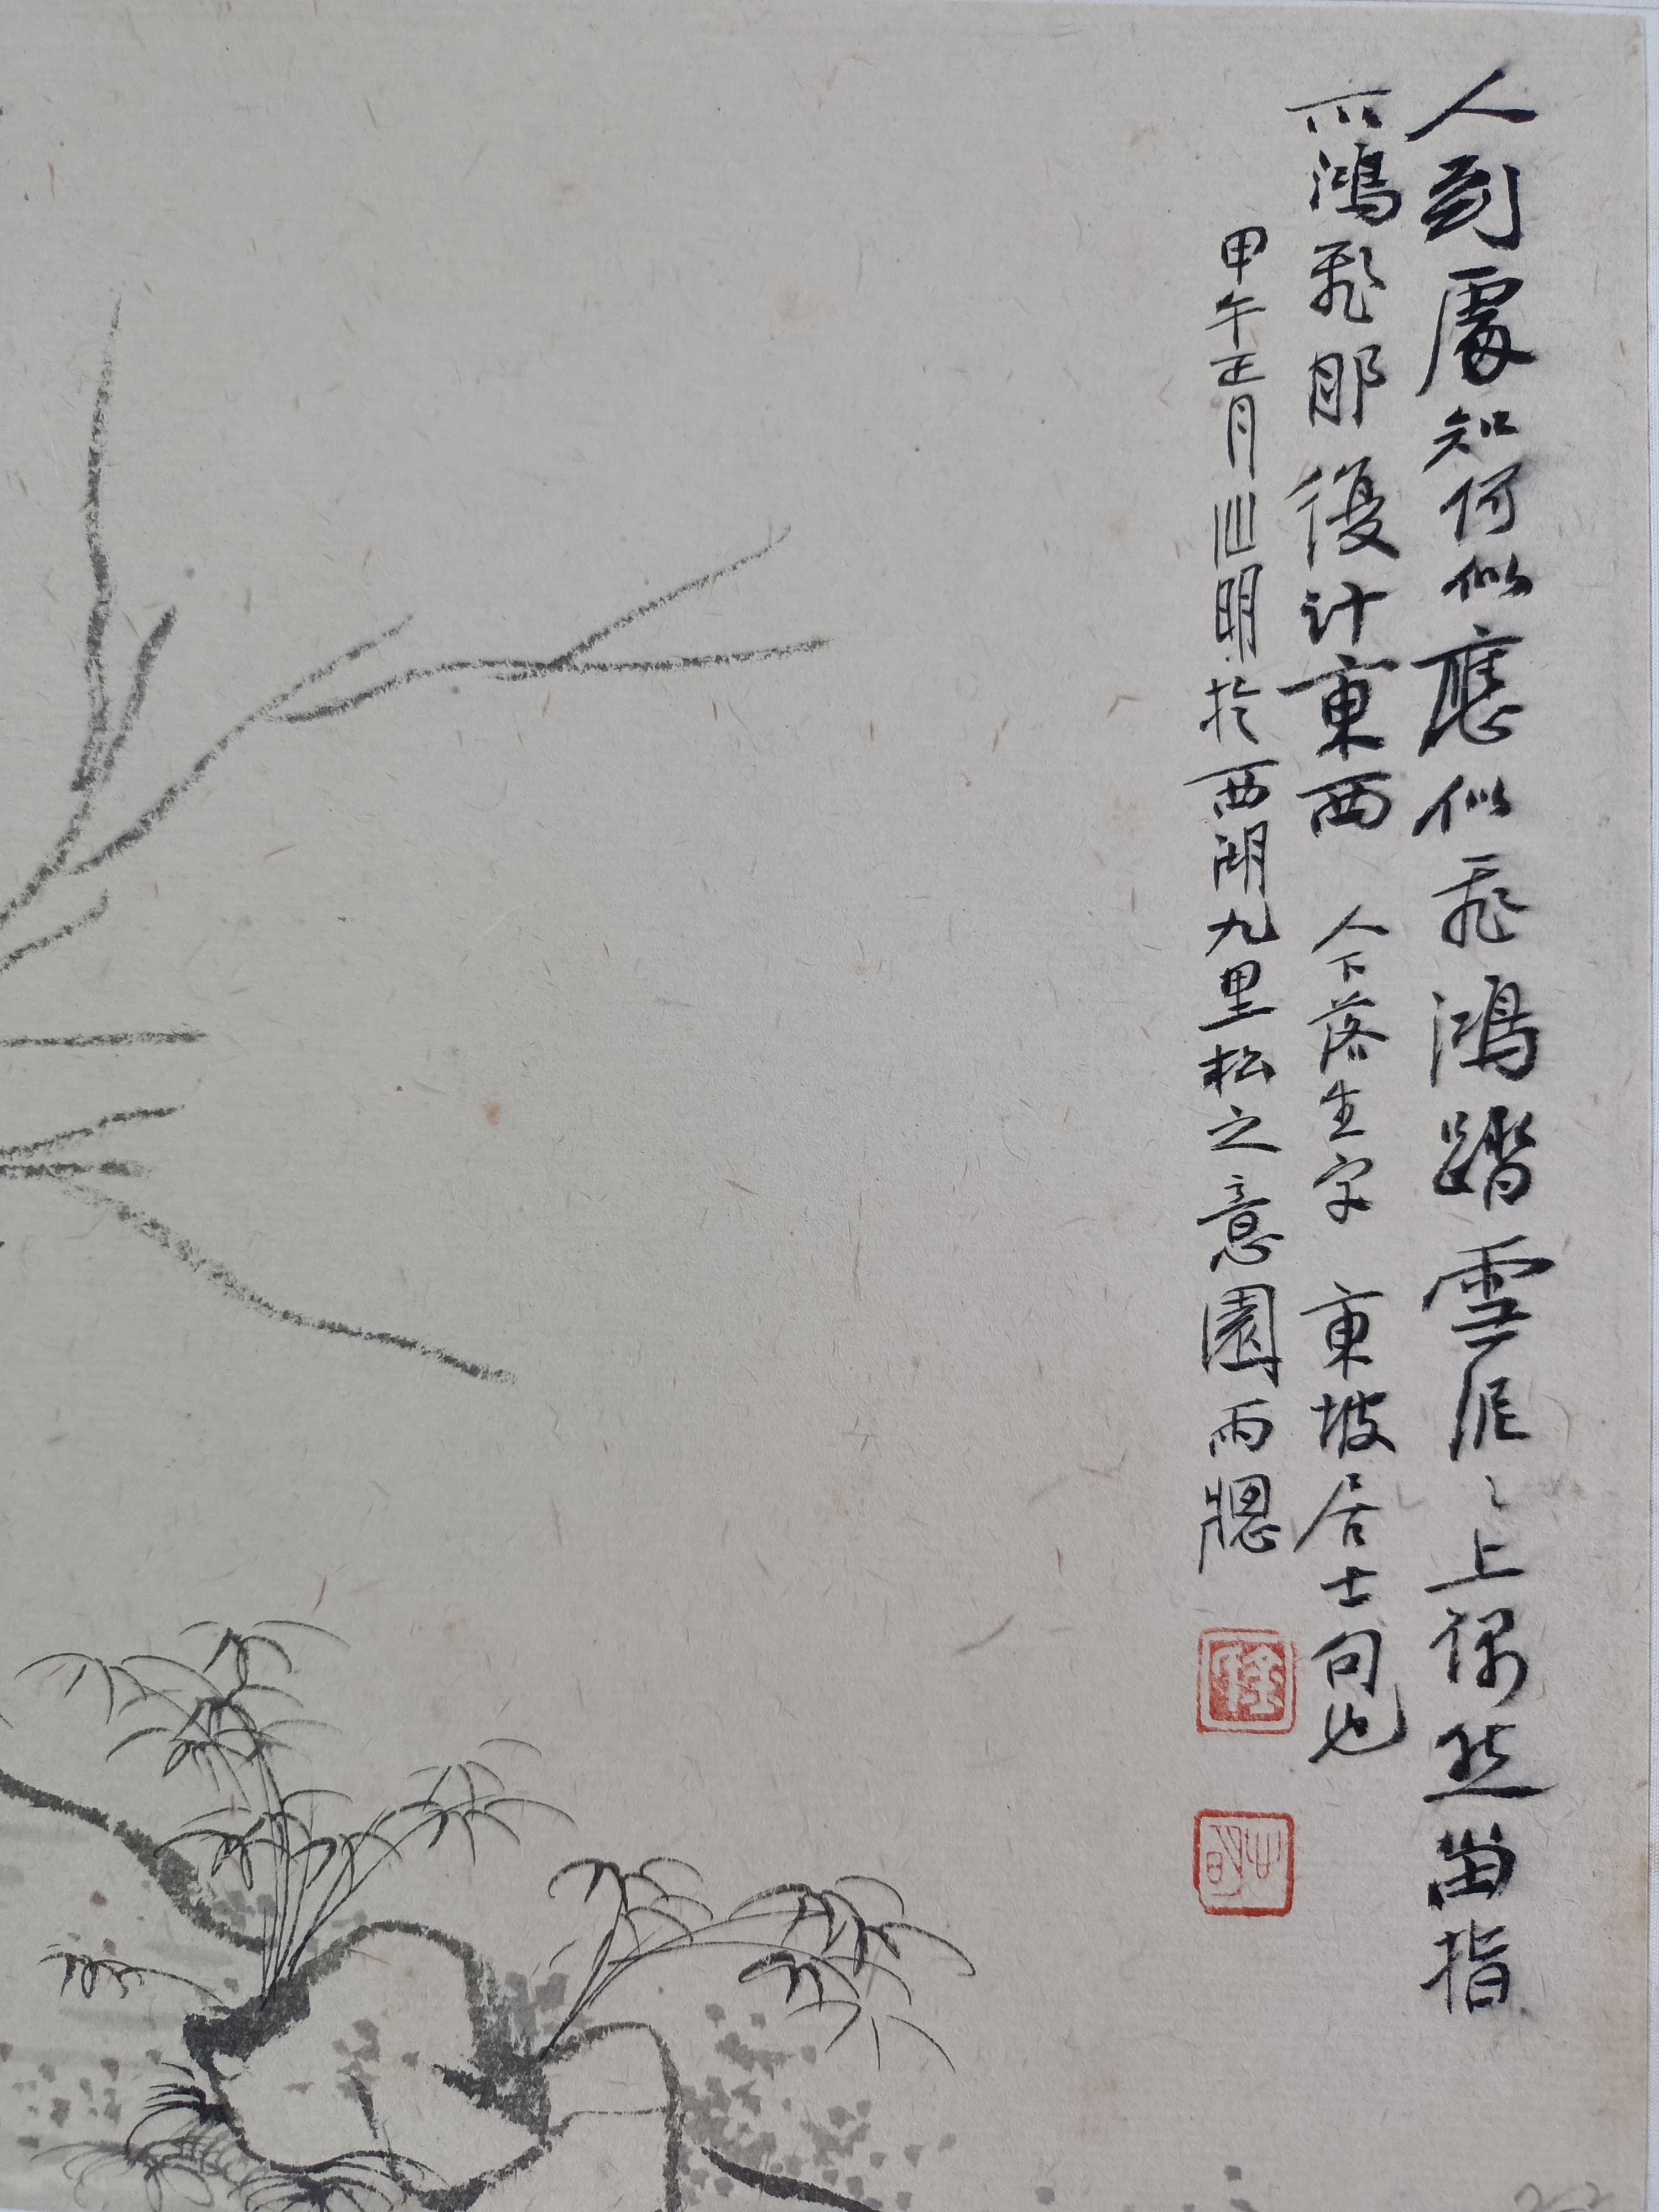 人到處知何似應似飛鴻踏雪泥々上偶然留指
爪鴻飛那復計東西 人下落生字 東坡居士句也
甲午正月山明於西湖九里松之意園雨牕